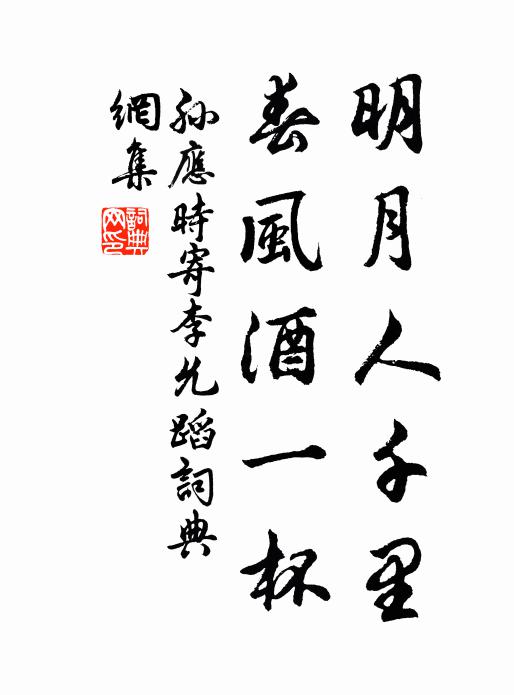 明月人千里
春風酒一杯
孫應時寄李允蹈詞典
網集
詞典網印